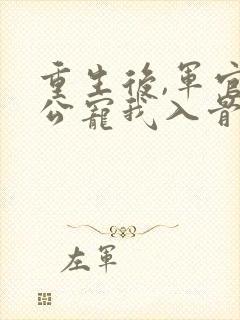 重生後,軍官
公寵我入骨
左軍